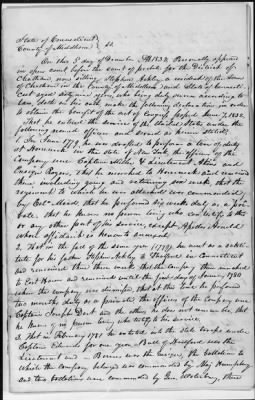 State of Connecticut
County of Middlesex } ss.
On this 8 day of December AD 1832. Personally appeared
in open court before the court of probate for the District of
Chatham, now sitting, Stephen Ashley a resident of the town
of Chatham in the County of Middlesex and State of Connecti-
cut aged sixty nine years, who being duly sworn according to
law, doth on his oath make the following declaration in order
to obtain the benefit of the act of Congress passed June 7, 1832.
That he entered the service of the United States under the
following named officers and served as herein stated.
1. In June 1779, he was drafted to perform a tour of duty
at Horseneck in the state of New York the officers of the
Company were Captain & Lieutenant Stone and
Ensign Rogers, that he marched to Horseneck and remained
there including going and returning six weeks, that the
regiment to which he was attached was commanded
by Col. Mead, that he performed this duty as a pri-
vate, that he knows no person living who can testify to this
or any other part of his service, except Apollos Arnold
whose affidavit is hereunto annexed.
2. That in the fall of the same year (1779), he went as a substi-
tute for his father Stephen Ashley to Stratford in Connecticut
and remained there three weeks that the Company then marched
to East Haven and remained until the first day of January 1780
when the company was dismissed, that at this time he performed
two months duty as a private the officers of the Company were
Captain Joseph Dart and the other he does not remember, that
he knows of no person living who testify to his service
3. That in February 1781 he entered into the state troops under
Captain Edwards for one year, Bull of Hartford was the
Lieutenant and Barnes was the ensign, the battalion to
which the Company belonged was commanded by Maj Humphrey
and two battalions were commanded by Gen Waterbury, there